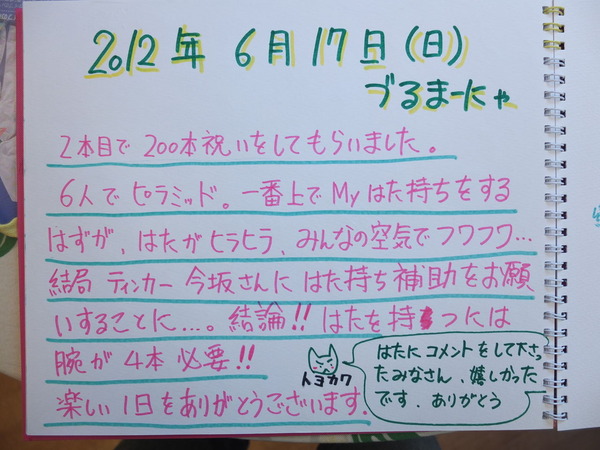 2012年 6月17日(日)
づるまーにゃ
2本目で200本祝いをしてもらいました。
6人でピラミッド。一番上でMyはた持ちをする
はずが、はたがヒラヒラ、みんなの空気でフワフワ…
結局 ティンカー 今坂さんに はた持ち補助をお願
いすることに…。結論!! はたを持つには
腕が4本必要!!
楽しい1日をありがとうございます。
トヨカワ
はたにコメントをして下さっ
たみなさん、嬉しかった
です。ありがとう